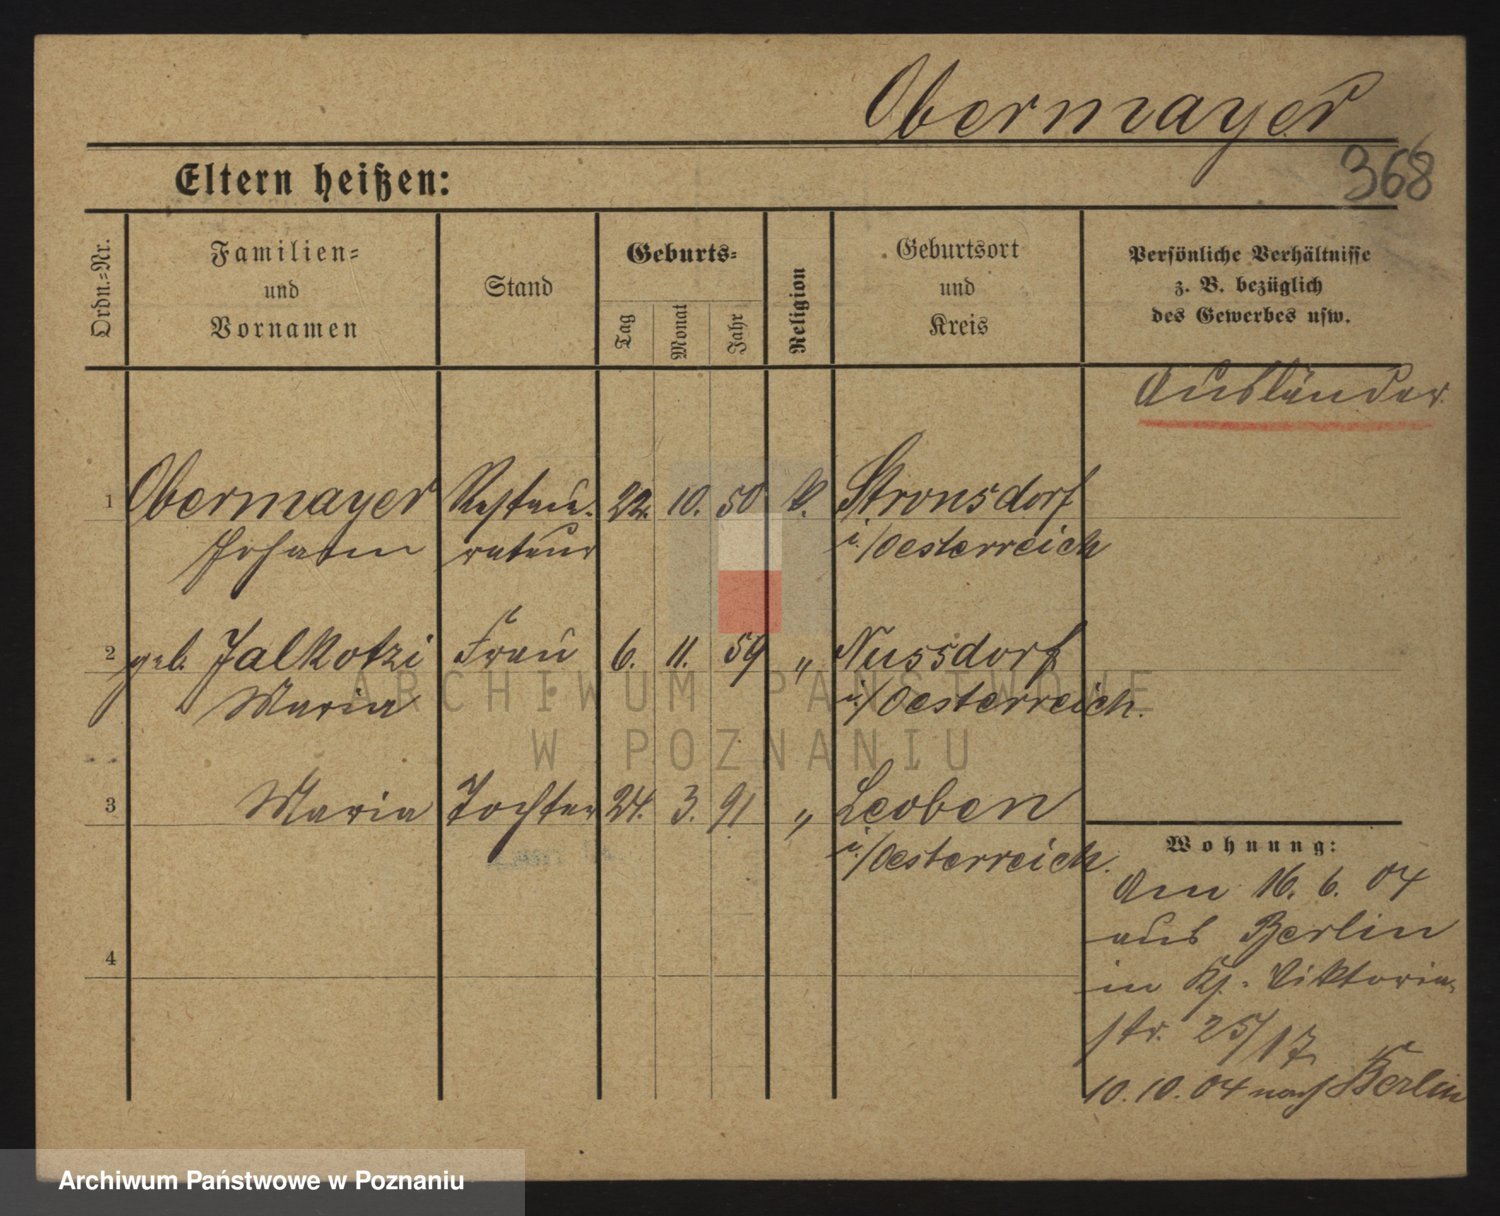 Obermayer
368
Eltern heißen:
Ordn.-Nr.
Familien-
und
Vornamen
Stand
Geburts-
Tag
Monat
Jahr
Religion
Geburtsort
und
Kreis
Persönliche Verhältnisse
z. B. bezüglich
des Gewerbes usw.
Ausländer.
1 Obermayer Restau- 22. 10. 50 k. Stronsdorf
Johann rateur i./Oesterreich
2 geb. Jalkotzi Frau 6. 11. 59 " Nussdorf
Maria i./Oesterreich.
3 Maria Tochter 24. 3. 91 " Leoben
i./Oesterreich.
4
Wohnung:
Am 16. 6. 04
aus Berlin
in Viktoria-
str. 25/17
10.10.04 nach Berlin
ARCHIWUM PAŃSTWOWE
W POZNANIU
Archiwum Państwowe w Poznaniu